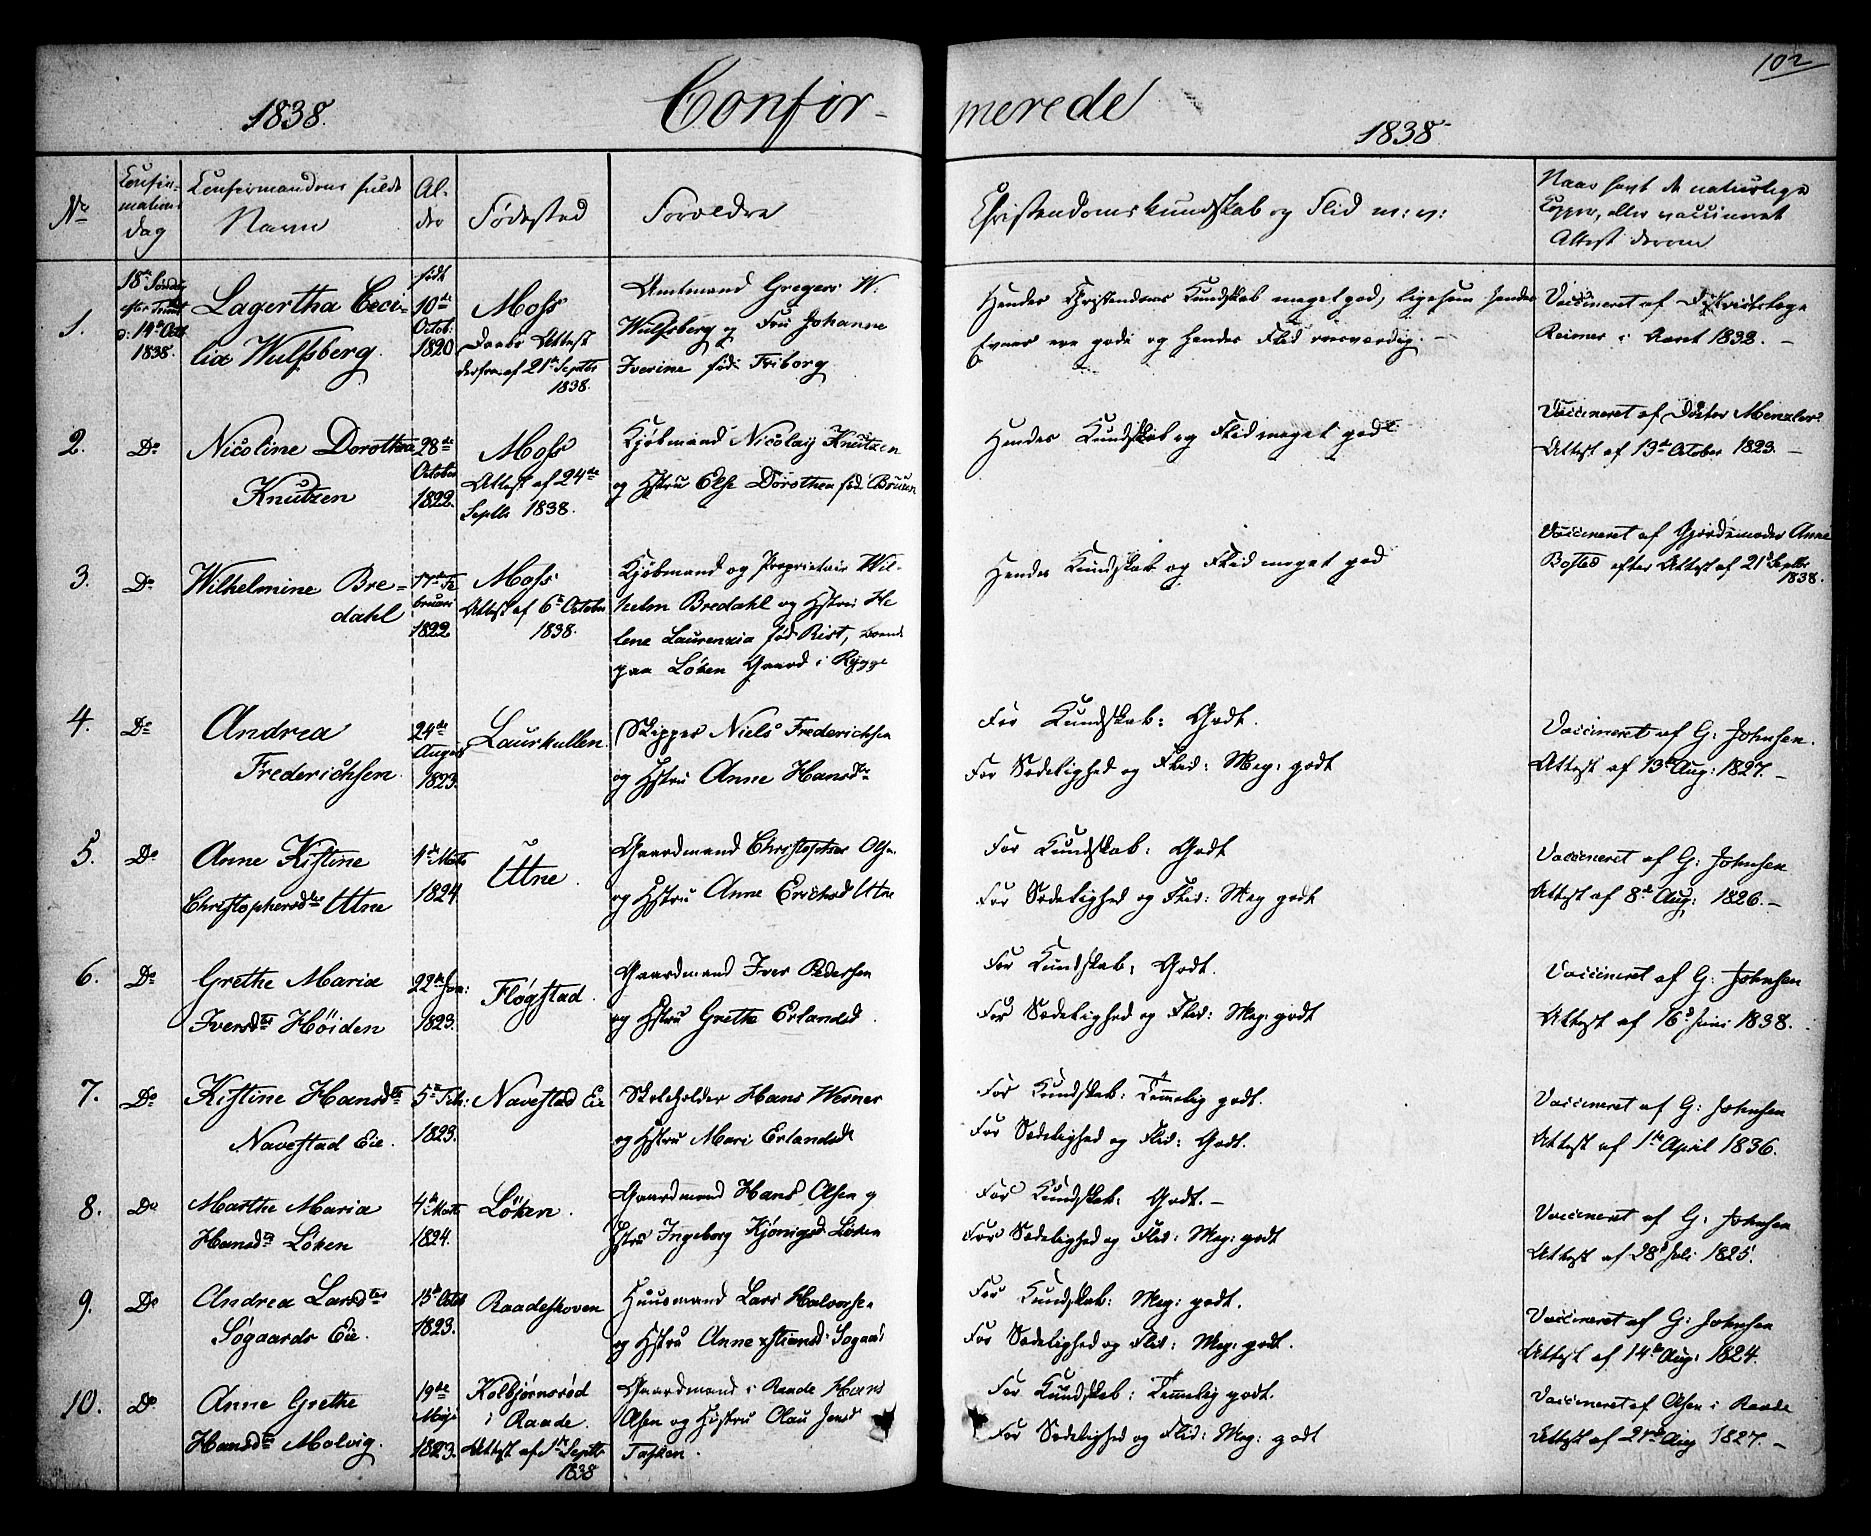 102
1838.
Confir-
merede
1838
No
Confir-
mations
dag
Confirmandens fulde
Navn
Al-
der
Fødested
Forældre
Christendomskundskab og Flid m: v:
Naar havt de naturlige
Kopper, eller vaccineret
Attest derom
1.
18de Søndag
efter Trinit
d: 14de Octb
1838.
Lagertha Ceci-
lia Wulfsberg.
født
10de
Octob:
1820
Moss
Daabs Attest
derfra af 21de Septbr
1838.
Amtmand Gregers W.
Wulfsberg og Frue Johanne
Iverine fød: Friborg
Hendes Christendoms Kundskab meget god, ligesom hendes
Evner ere gode og hendes Flid roesværdig. —
Vaccineret af Districtslæge
Reimer i Aaret 1838. —
2.
Do
Nicoline Dorothea
Knutzen
28de
October
1822.
Moss
Attest af 24de
Septbr 1838.
Kjøbmand Nicolay Knutzen
og Hstru Else Dorothea fød: Bruun
Hendes Kundskab og Flid meget god
Vaccineret af Doctor Menzler
Attest af 13de October 1823. —
3.
Do
Wilhelmine Bre-
dahl
17de Fe
bruari
1822
Moss
Attest af 6te October
1838.
Kjøbmand og Proprietair Wil-
helm Bredahl og Hstrue He
lene Laurenzia fød Rist, boende
paa Löken Gaard i Rygge
Hendes Kundskab og Flid meget god
Vaccineret af Gjordemoder Anne
Bosted efter Attest af 21de Septbr
1838.
4.
Do
Andrea
Frederichsen.
24de
August
1823.
Laurkullen.
Skipper Niels Frederichsen
og Hstru Anne Hansdtr
For Kundskab: Godt.
For Sædelighed og Flid: Meg: godt
Vaccineret af G: Johnsen.
Attest af 13de Aug: 1827. —
5.
Do
Anne Kistine
Christophersdtr Utne
4de Marts
1824
Utne.
Gaardmand Christopher Olsen
og Hstru Anne Erichsd Utne
For Kundskab: Godt
For Sædelighed og Flid: Meg godt
Vaccineret af G: Johnsen
Attest af 8de Aug: 1826. —
6.
Do
Grethe Maria
Iversdtr Höiden
22de Jan:
1823.
Fløgstad.
Gaardmand Iver Pedersen
og Hstru Grethe Erlandsd.
For Kundskab: Godt.
For Sædelighed og Flid: Meg: godt
Vaccineret af G: Johnsen
Attest af 16d Juni 1838.
7.
Do
Kistine Hansdtr
Navestad Eie.
5te Feb:
1823.
Navestad Eie
Skoleholder Hans Werner
og Hstru Mari Erlandsdt
For Kundskab: Temmelig godt.
For Sædelighed og Flid: Godt.
Vaccineret af G: Johnsen
Attest af 1te April 1836.
8.
Do
Marthe Maria
Hansdtr Löken
4de Marts
1824.
Löken.
Gaardmand Hans Olsen og
Hstru Ingeborg Kjönigsd Löken
For Kundskab: Godt. —
For Sædelighed og Flid: Meg: godt
Vaccineret af G: Johnsen
Attest af 28d Juli 1825.
9.
Do
Andrea Larsdtr
Søgaards Eie.
15de Octob
1823.
Raadeskoven
Huusmand Lars Halvorsen
og Hstru Anne xstiansd: Sogaard
For Kundskab: Meg: godt.
For Sædelighed og Flid: Meg: godt.
Vaccineret af G: Johnsen
Attest af 14de Aug: 1824.
10.
Do
Anne Grethe
Hansdtr Molvig.
19de
Maji
1823.
Kolbjørnsrød
i Raade.
Attest af 1te Septbr
1838
Gaardmand i Raade Hans
Olsen og Hustru Olau Jensd
Tasken.
For Kundskab: Temmelig godt.
For Sædelighed og Flid: Meg: godt
Vaccineret af Olsen i Raade
Attest af 21de Aug 1827. —